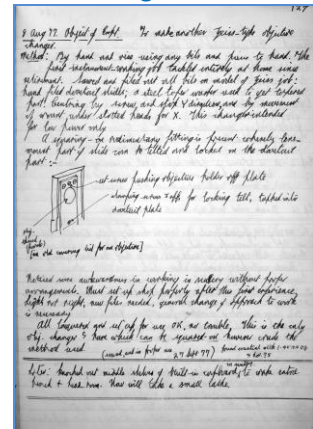 127
8 Aug 77. Object of Expt. To make another Zeiss-type objective
changer.
Method: By hand and vise using any bits and piece to hand. The
first instrument-making job tackled entirely at home since
retirement. Sawed and filed out all bits on model of Zeiss job:
hand filed dovetail slides; a steel taper used to get tapered
part. Centring by screw, and stop Y direction, and by movement
of mount under slotted heads for X. This changer intended
for low power only
A squaring-on rudimentary fitting is present whereby lens-
mount part of slide can be tilted and locked on the dovetail
part:—
set screw pushing objective holder off plate
clamping screws for locking tilt, tapped into
dovetail plate
obj.
[an old covering lid for an objective]
Noticed some awkwardness in working in scullery without proper
arrangements. Must set up shop properly after this first experience,
light not right, new files needed, general change of approach to work
is necessary
All lowered and set up for use OK, no trouble. This is the only
obj. changer I have which can be squared on however crude the
method used
27 Sept 77
marked out middle shelves of built-in cupboard, to make entire
bench + tool run. Now will take a small lathe.